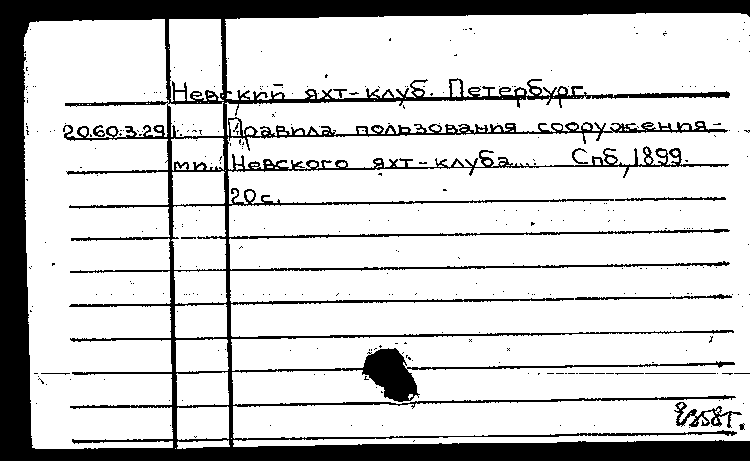 Невский яхт-клуб. Петербург.
20.60.3.29 Правила пользования сооружения-
ми Невского яхт-клуба. Спб., 1899.
20 с.